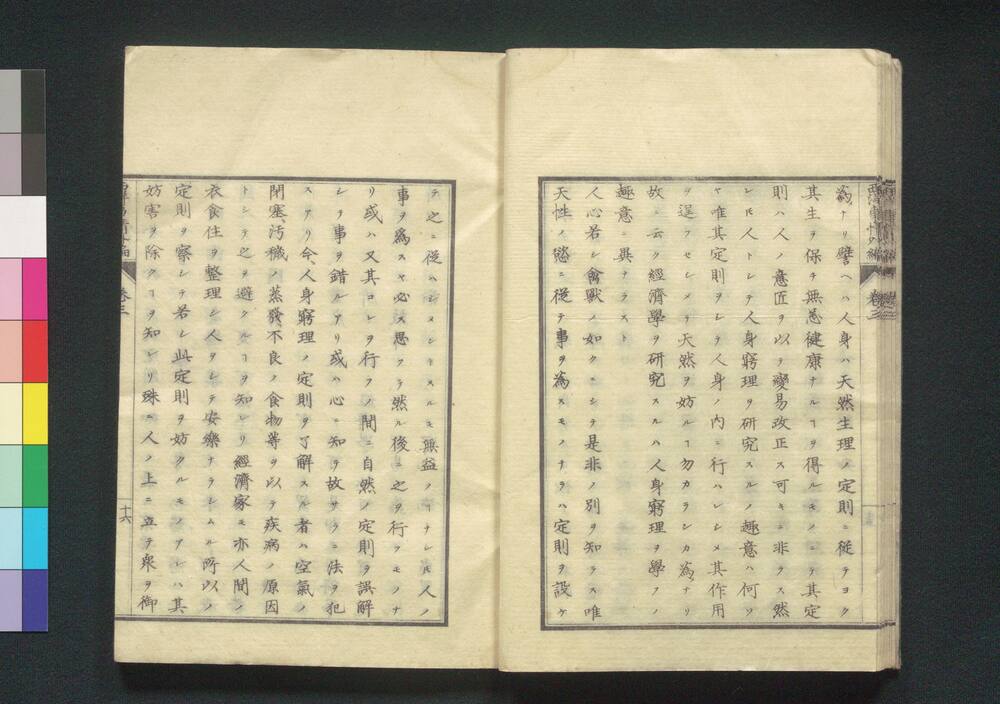 為ナリ譬ヘハ人身ハ天然生理ノ定則ニ従テヨク
其生ヲ保チ無恙健康ナルヿヲ得ルモノニテ其定
則ハ人ノ意匠ヲ以テ變易改正ス可キニ非ラス然
レ𪜈人トシテ人身窮理ヲ研究スルノ趣意ハ何ソ
ヤ唯其定則ヲシテ人身ノ内ニ行ハレシメ其作用
ヲ逞フセシメテ天然ヲ妨ルヿ勿カラシカ為ナリ
故ニ云ク經濟學ヲ研究スルハ人身窮理ヲ學フノ
趣意ニ異ナラスト
人心若シ禽獣ノ如クニシテ是非ノ別ヲ知ラス唯
天性ノ慾ニ従テ事ヲ為スモノナラハ定則ヲ設ケ
テ之ニ従ハシメントスルモ無益ノヿナレ𪜈人ノ
事ヲ為スヤ必ス思フテ然ル後ニ之ヲ行フモノナ
リ或ハ又其コレヲ行フノ間ニ自然ノ定則ヲ誤解
シテ事ヲ錯ルアリ或ハ心ニ知テ故サラニ法ヲ犯
スアリ今人身窮理ノ定則ヲ了解スル者ハ空氣ノ
閉塞汚穢ノ蒸發不良ノ食物等ヲ以テ疾病ノ原因
トシテ之ヲ避クルヿヲ知レリ經濟家モ亦人間ノ
衣食住ヲ整理シ人ヲシテ安樂ナラシムル所以ノ
定則ヲ察シテ若シ此定則ヲ妨クルモノアレハ其
妨害ヲ除クヿヲ知レリ殊ニ人ノ上ニ立テ衆ヲ御
卷三
十六